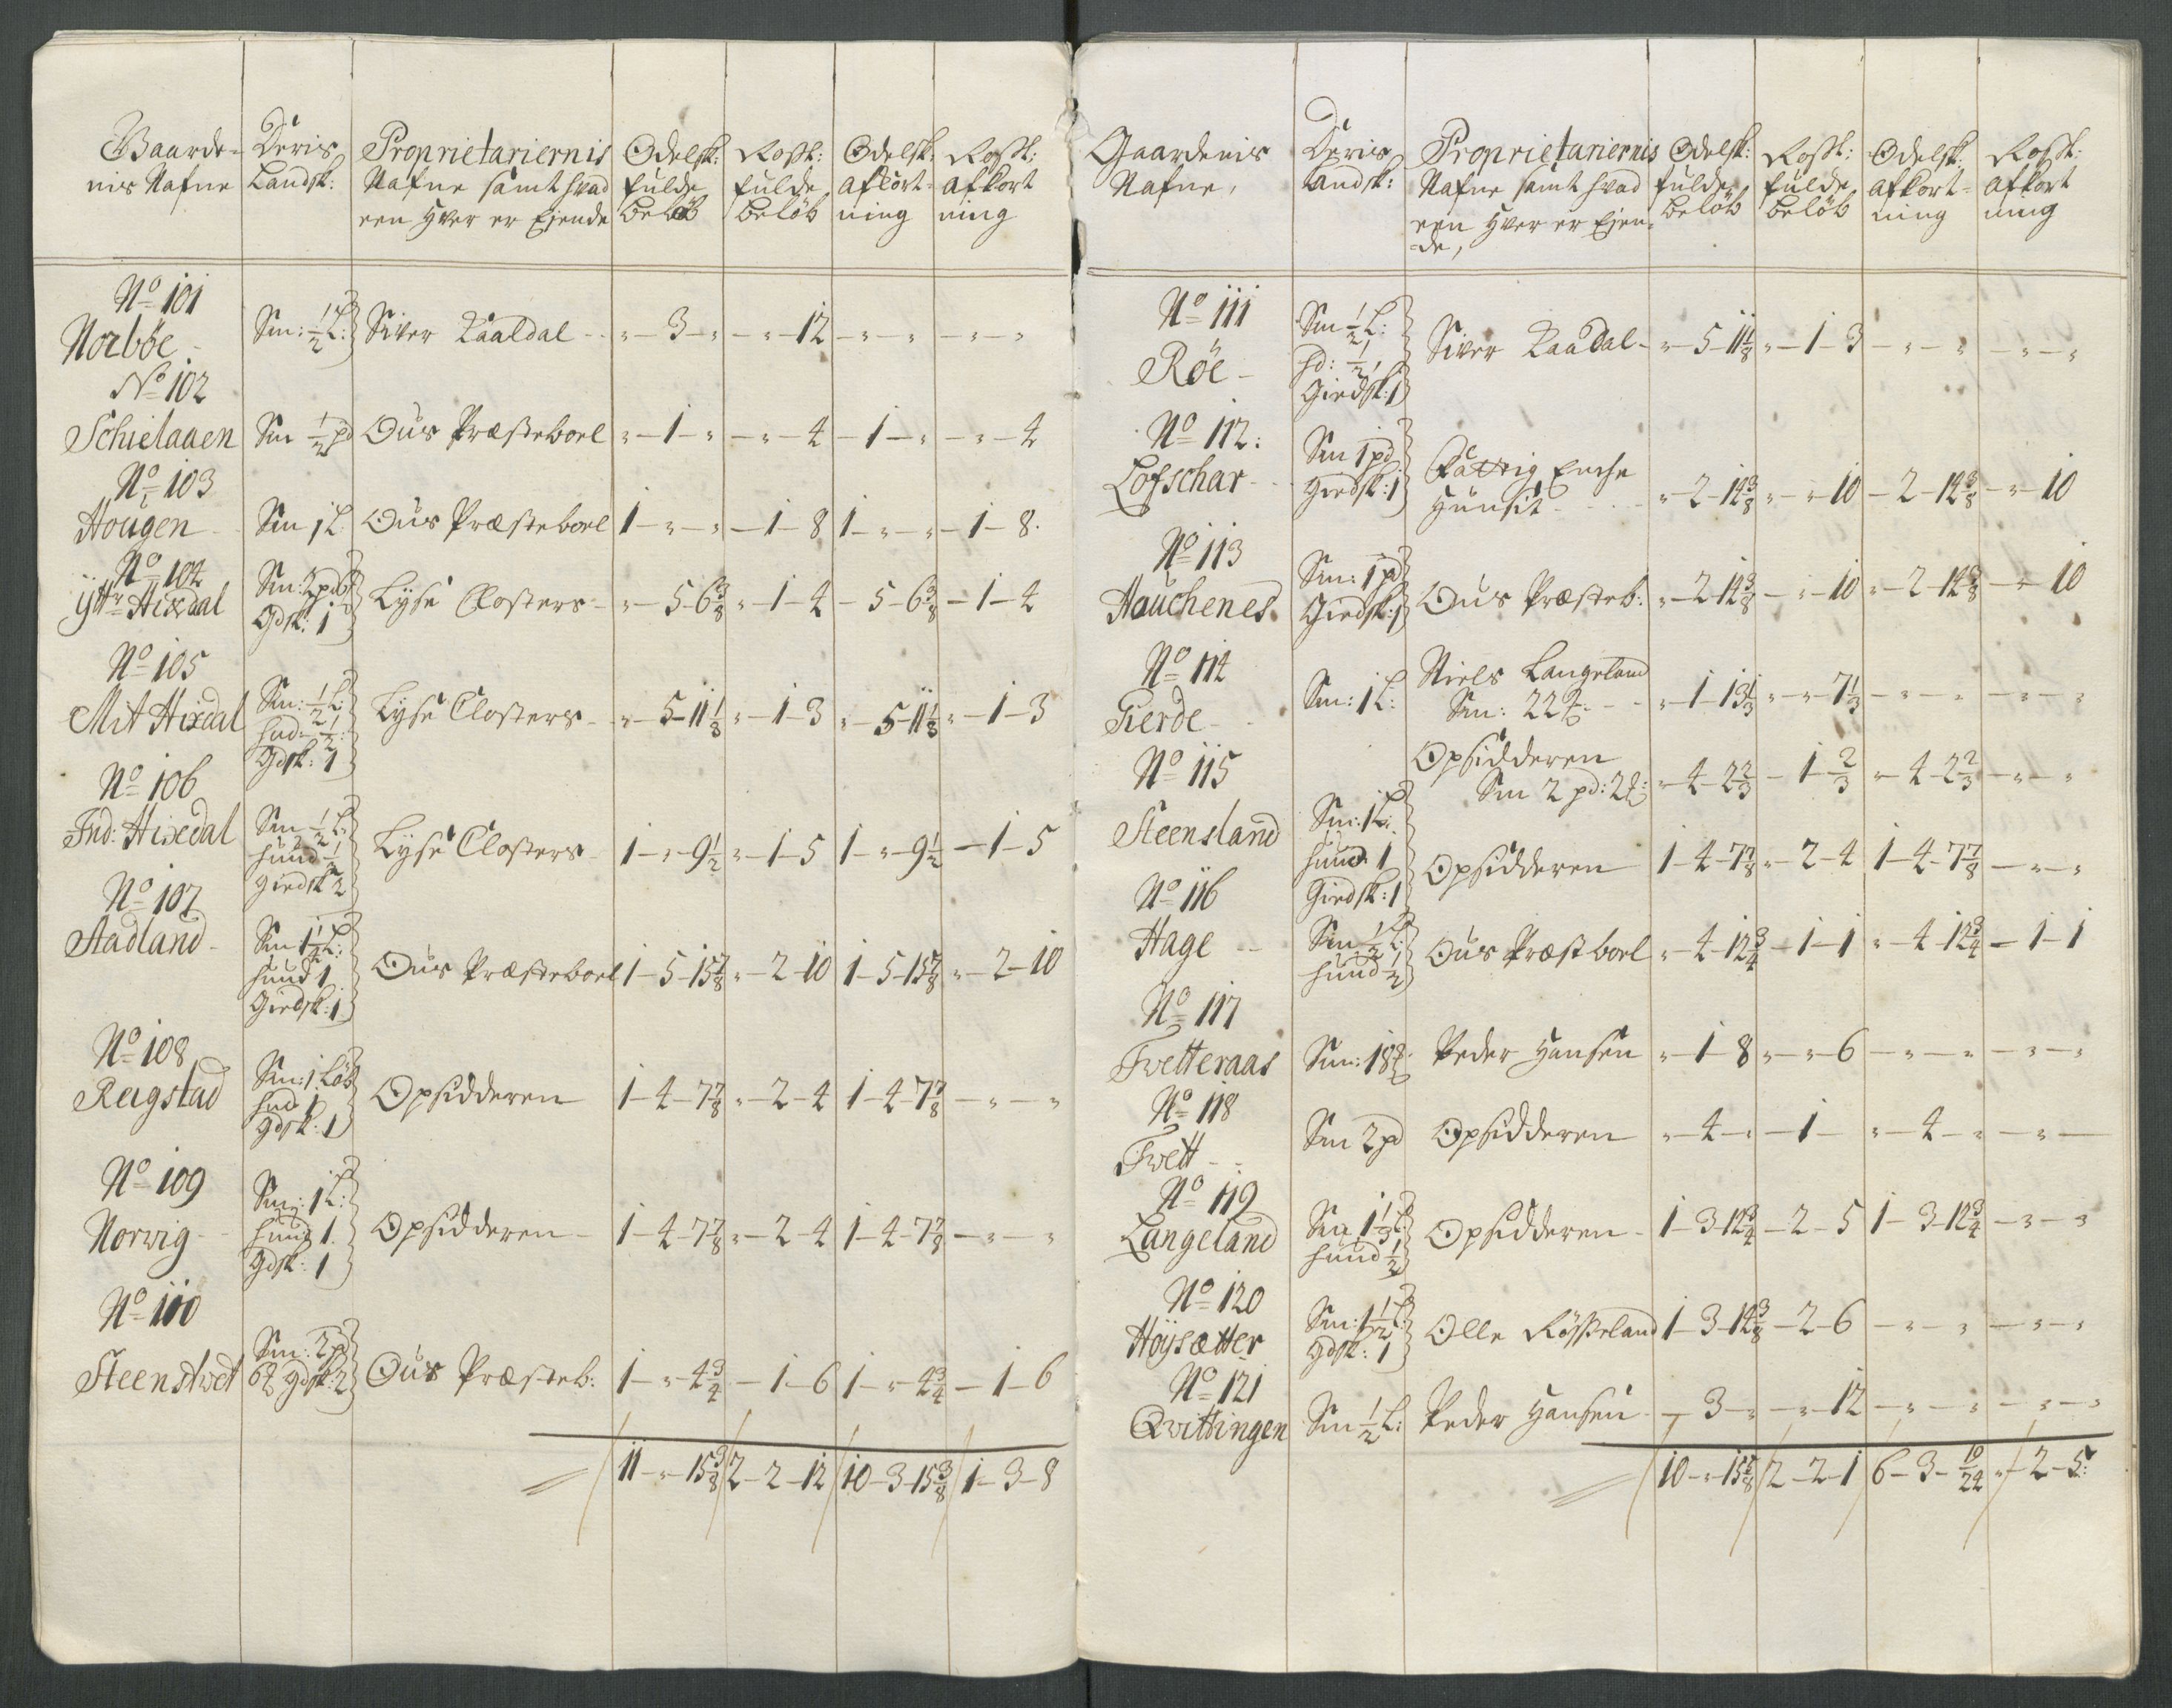 Gaarde=
nis Nafne
Deris
Landsk:
Proprietariernis
Nafne samt hvad
een hver er Ejende
Odelsk:
fulde
beløb
Rostk:
fulde
beløb
Odelsk:
afkort-
ning
Rostk:
afkort
ning
No 101
Norbøe Sm: ½ L: Siver Raaldal - - „ - 3 - „ - „ - 12 - „ - „ - „ - „
No 102
Schielaaen Sm ½ pd Ous Præsteboel „ - 1 - „ - „ - 4 - 1 - „ - „ - 4
No 103
Hougen Sm 1 L Ous Præsteboel 1 - „ - „ - 1 - 8 1 - „ - „ - 1 - 8.
No 104
ÿttr Hixdal Sm: 2 pd
Gdsk: 1 Lyse Closters - „ - 5 - 6 3/8 „ - 1 - 4 - 5 - 6 3/8 - 1 - 4
No 105
Mit Hixdal Sm: ½ L:
hud: ½:
Gdsk: 1 Lyse Closters - „ - 5 - 11 1/8 „ - 1 - 3 „ - 5 - 11 1/8 „ - 1 - 3
No 106
Ind: Hixedal Sm ½ L:
huud ½
Giedsk 2 Lyse Closters 1 - „ - 9 ½ „ - 1 - 5 1 - „ - 9 ½ - 1 - 5
No 107
Stadland - Sm 1 ½ L:
huud 1
Giedsk: 1 Ous Præsteboel 1 - 5 - 15 7/8 „ - 2 - 10 1 - 5 - 15 7/8 „ - 2 - 10
No 108
Reigstad Sm: 1 Løb
hud 1
Gdsk: 1 Opsidderen 1 - 4 - 7 7/8 „ - 2 - 4 1 - 4 - 7 7/8 - „ - „
No 109
Norwig - Sm: 1 L:
huud 1.
Gdsk: 1 Opsidderen - 1 - 4 - 7 7/8 „ - 2 - 4 1 - 4 - 7 7/8 - „ - „
No 110
Steenstwet Sm: 2 pd
6 Gdsk: 2 Ous Præsteb: 1 - „ - 4 3/4 - 1 - 6 1 - „ - 4 3/4 - 1 - 6
11 - „ - 15 3/8 / 2 - 2 - 12 / 10 - 3 - 15 3/8 / 1 - 3 - 8
Gaardenis
Nafne,
Deris
Landsk:
Proprietariernis
Nafne samt hvad
een hver er Ejen-
de,
Odelsk:
fulde
beløb
Rostk:
fulde
beløb
Odelsk:
afkort-
ning
Rostk:
afkort
ning
No 111
Røe - Sm ½ L:
hd: ½,
Giedsk: 1 Siver Raadal - „ - 5 - 11 1/8 „ - 1 - 3 - „ - „ - „ - „
No 112:
Lofschar - Sm 1 pd
Giedsk: 1 Fattig Enche
Huusit - - - „ - 2 - 14 3/8 „ - „ - 10 - 2 - 14 3/8 - „ - 10
No 113
Hauchenes Sm: 1 pd
Giedsk: 1 Ous Præsteb: „ - 2 - 14 3/8 - „ - 10 „ - 2 - 14 3/8 - „ - 10
No 114
Gierde - Sm: 1 L: Niels Langeland
Sm: 22 - - „ - 1 - 13 1/3 „ - „ - 7 1/3 - „ - „ - „ - „
No 115 Opsidderen
Sm 2 pd: 2 „ - 4 - 2 2/3 - 1 - 2/3 „ - 4 - 2 2/3 - „ - „
Steensland Sm: 1 L:
huud 1
Giedsk: 1 Opsidderen 1 - 4 - 7 7/8 „ - 2 - 4 1 - 4 - 7 7/8 - „ - „
No 116
Hage - - Sm ½ L:
huud ½ Ous Præstboel „ - 4 - 12 3/4 - 1 - 1 „ - 4 - 12 3/4 - 1 - 1
No 117
Twetteraas Sm: 18 Peder Hansen „ - 1 - 8 „ - „ - 6 - „ - „ - „ - „
No 118
Twett - - Sm 2 pd Opsidderen „ - 4 - „ - 1 - „ - 4 - „ - „ -
No 119
Langeland Sm 1 1/3 L:
huud ½ Opsidderen - 1 - 3 - 12 3/4 - 2 - 5 1 - 3 - 12 3/4 - „ - „
No 120
Høysætter Sm: 1 ½ L:
Gdsk: 1 Olle Røsseland 1 - 3 - 14 3/8 - 2 - 6 - „ - „ - „ - „
No 121
Qvittingen Sm ½ L: Peder Hansen - „ - 3 - „ - „ - 12 - „ - „ - „ - „
10 - „ - 15 7/8 / 2 - 2 - 1 / 6 - 3 - 10/24 „ / - 2 - 5: